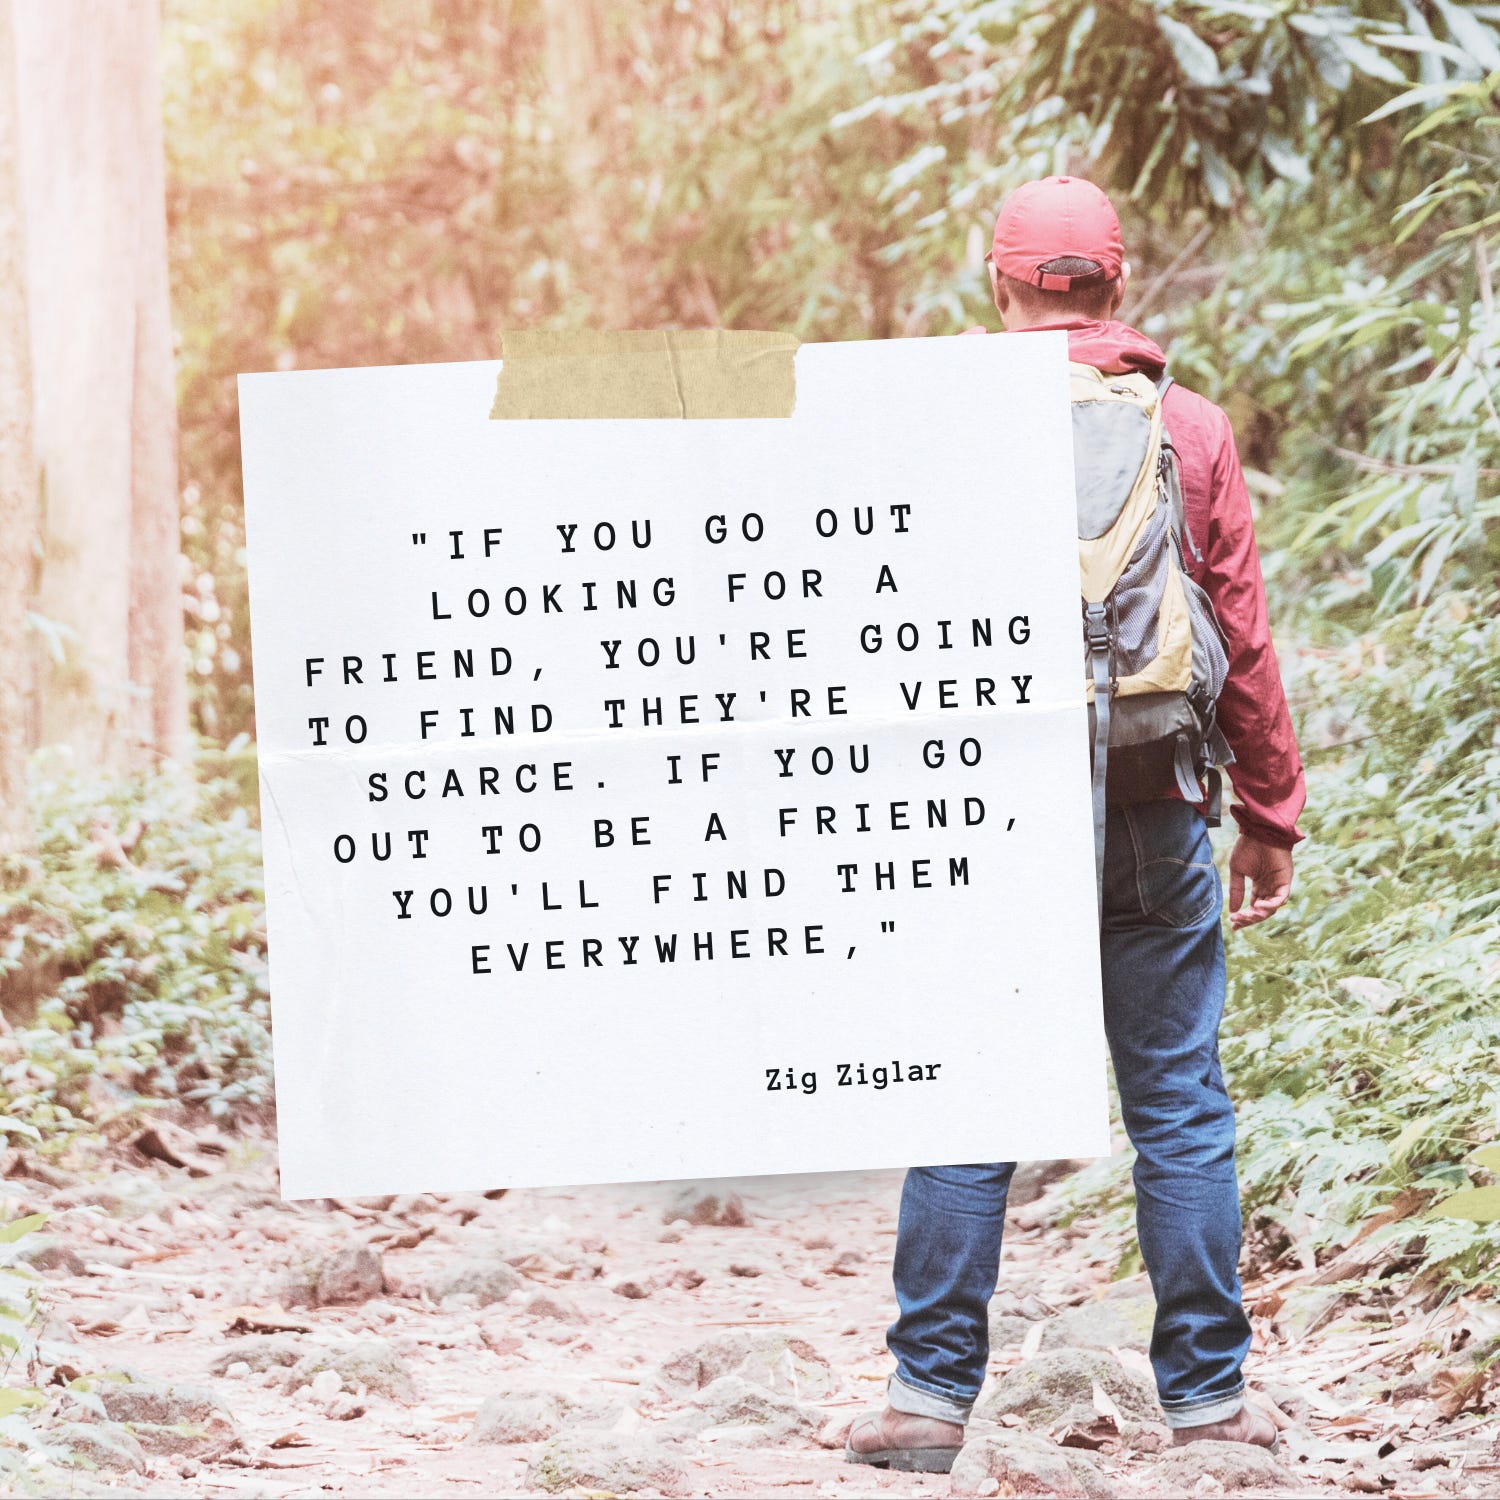 "IF YOU GO OUT
LOOKING FOR A
FRIEND, YOU'RE GOING
TO FIND THEY'RE VERY
SCARCE. IF YOU GO
OUT TO BE A FRIEND,
YOU'LL FIND THEM
EVERYWHERE,"
Zig Ziglar